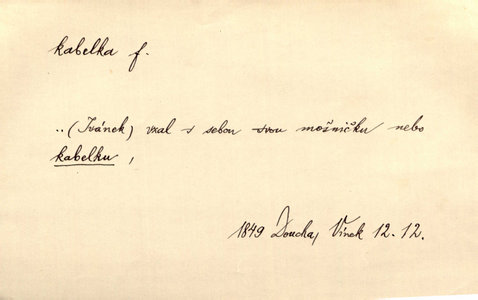 kabelka f.
..(Ivánek) vzal s sebou svou mošničku nebo
kabelku,
1849 Doucha, Vínek 12.12.